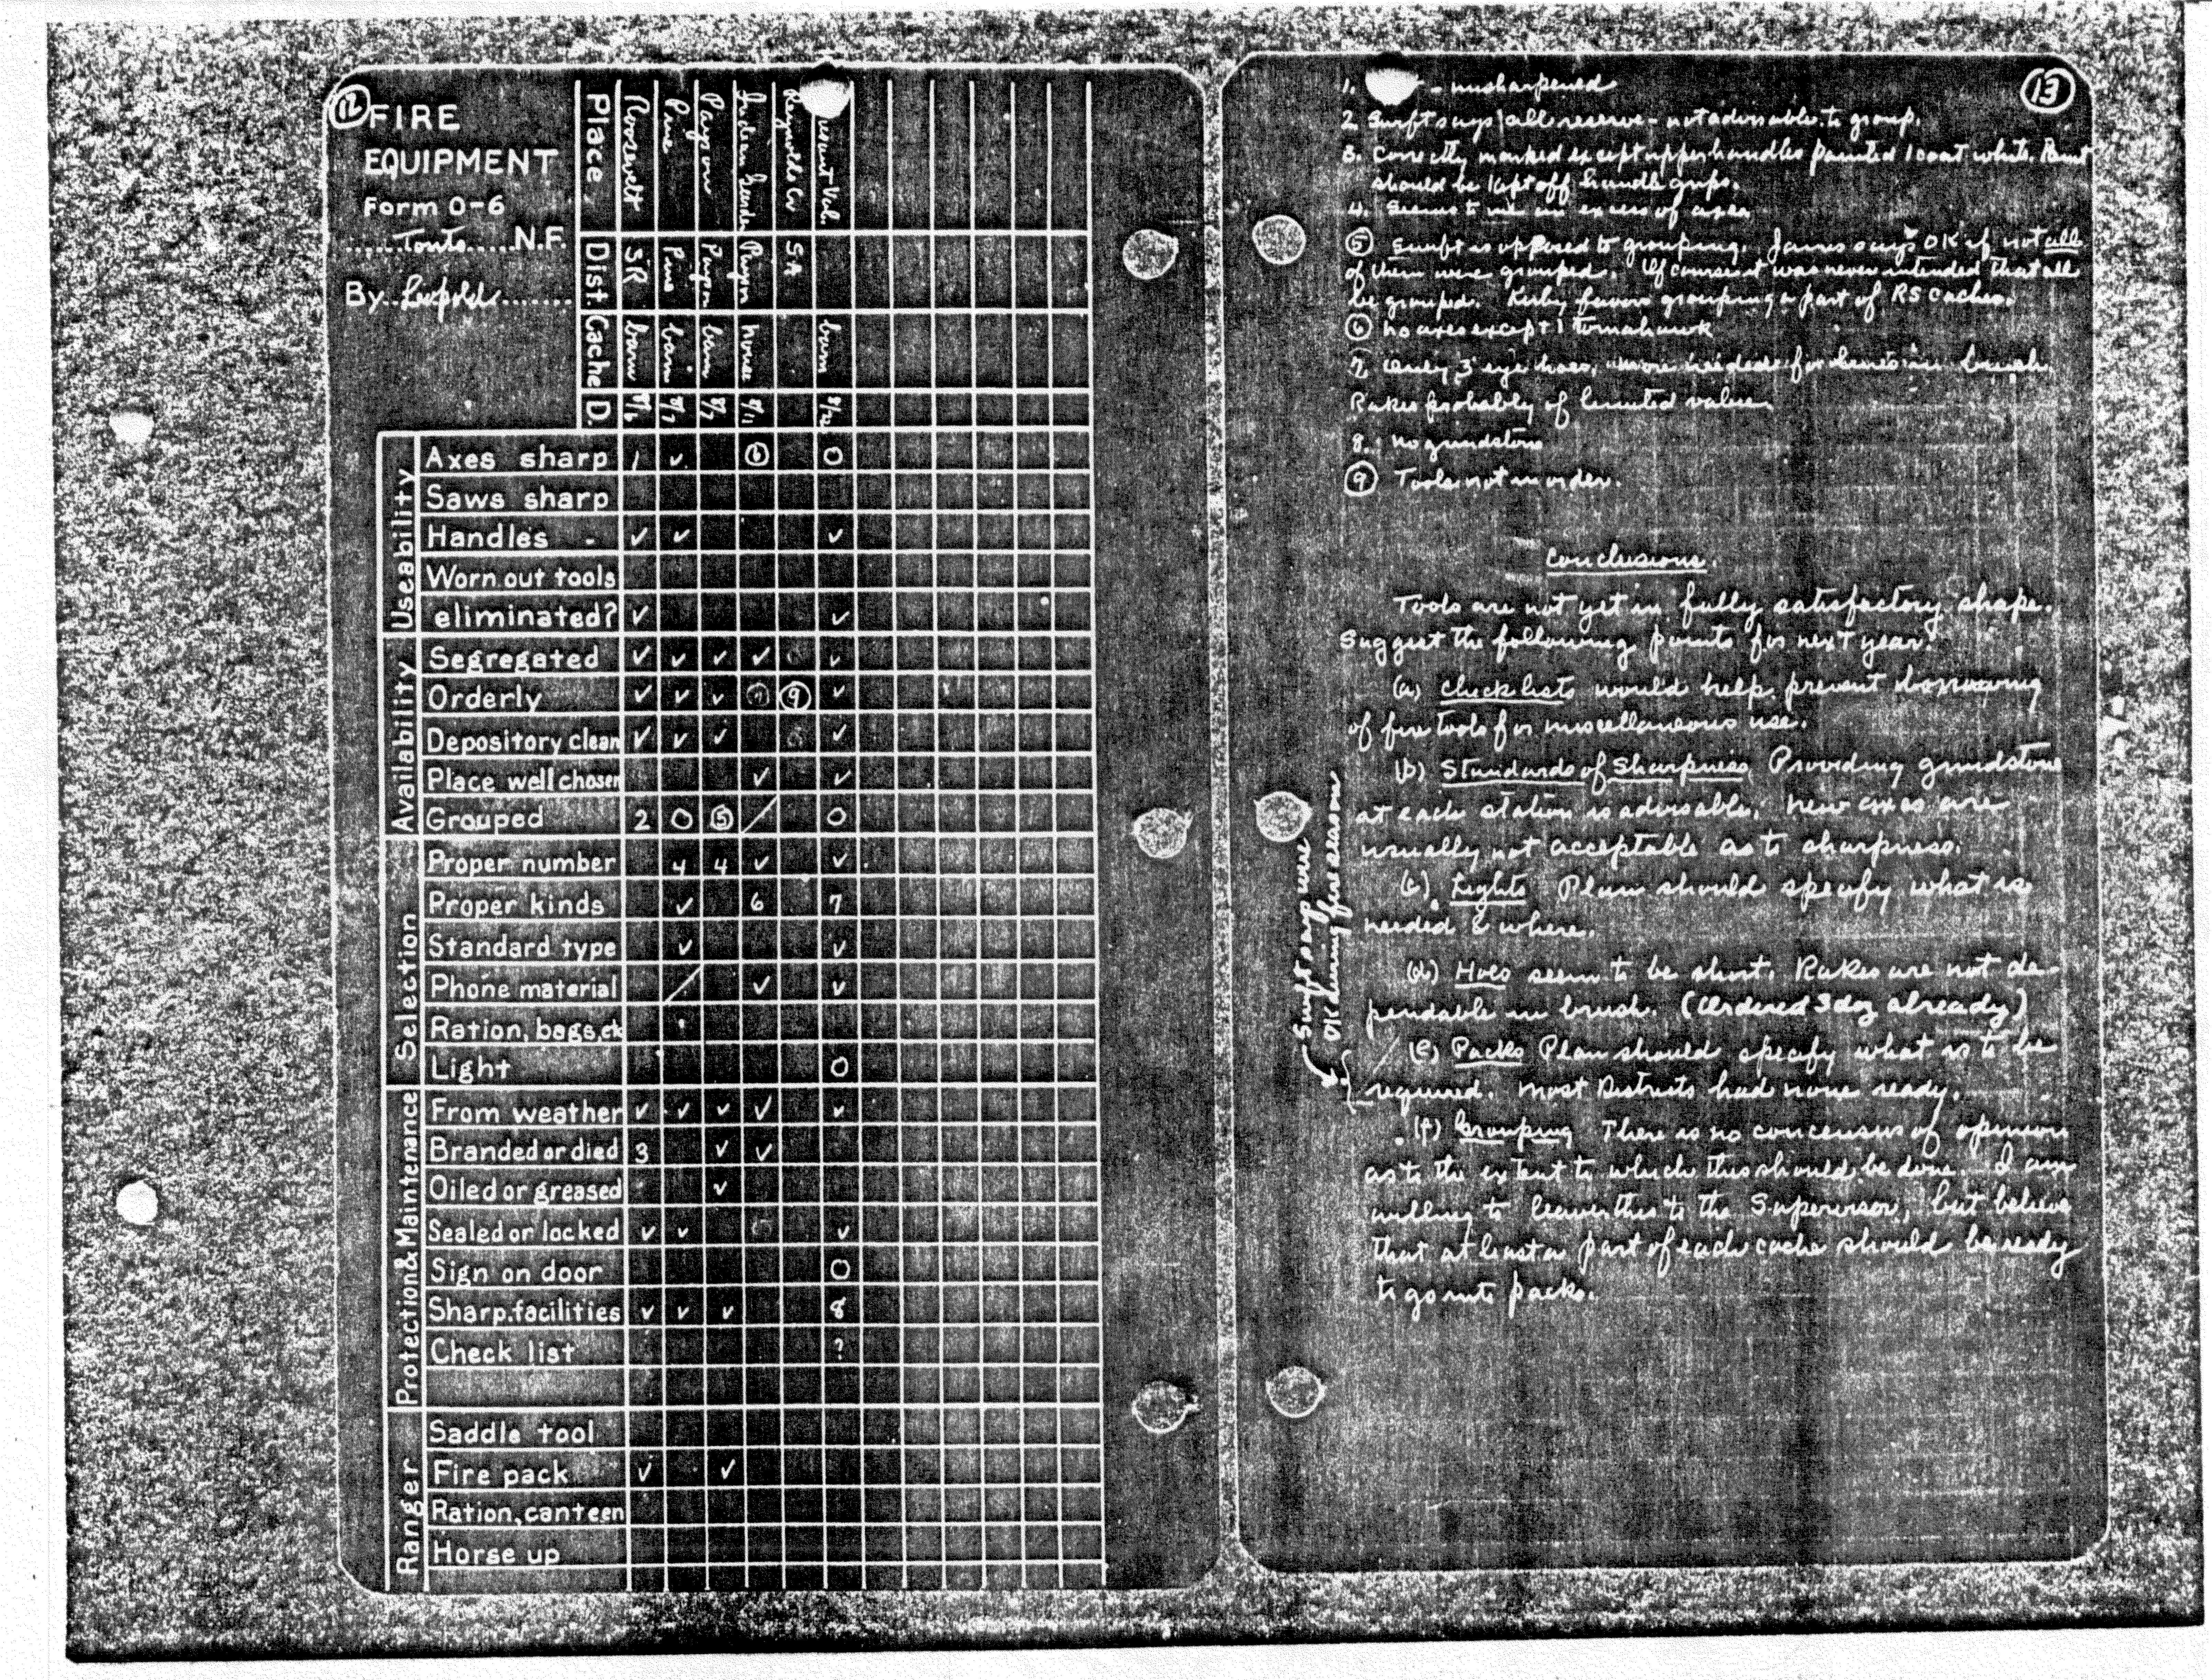 12
FIRE
EQUIPMENT
Form O-6
Tonto N.F.
By Leopold
Place Roosevelt Pine Payson Indian Gardens Reynolds Cr Pleasant Val.
Dist. SR Pine Payson Payson SA
Cache barn barn barn house barn
D. 8/6 8/7 8/7 8/11 8/12
Useability
Axes sharp 1 ✓ 6 O
Saws sharp
Handles - ✓ ✓ ✓
Worn out tools
eliminated? ✓ ✓
Availability
Segregated ✓ ✓ ✓ ✓ ✓
Orderly ✓ ✓ ✓ 9 ✓
Depository clean ✓ ✓ ✓ ✓
Place well chosen ✓ ✓
Grouped 2 O 5 / O
Selection
Proper number 4 4 ✓ ✓
Proper kinds ✓ 6 7
Standard type ✓ ✓
Phone material / ✓ ✓
Ration, bags, etc
Light O
Protection & Maintenance
From weather ✓ ✓ ✓ ✓ ✓
Branded or died 3 ✓ ✓
Oiled or greased ✓
Sealed or locked ✓ ✓ ✓
Sign on door O
Sharp. facilities ✓ ✓ ✓ 8
Check list ?
Ranger
Saddle tool
Fire pack ✓ ✓
Ration, canteen
Horse up
13
1. - unsharpened
2 Swift says all reserve - not advisable to group.
3. Correctly marked except upper handles painted 1 coat white. Paint
should be kept off handle grips.
4. Seems to me an excess of axes
5 Swift is opposed to grouping. James says OK if not all
of them were grouped. Of course it was never intended that all
be grouped. Kirby favors grouping a part of RS caches.
6 no axes except 1 tomahawk
7. Only 3 eye hoes, more needed for in brush.
Rakes probably of limited value
8. No grindstone
9 Tools not in order.
Conclusions.
Tools are not yet in fully satisfactory shape.
Suggest the following points for next year:
(a) Check lists would help prevent borrowing
of fire tools for miscellaneous use.
(b) Standards of Sharpness Providing grindstone
at each station is advisable. New axes are
usually not acceptable as to sharpness.
(c). Lights Plan should specify what is
needed & where.
(d) Hoes seem to be short. Rakes are not de-
pendable in brush. (Ordered 3 doz already)
(e) Packs Plan should specify what is to be
required. Most Districts had none ready.
(f) Grouping There is no concensus of opinion
as to the extent to which this should be done. I am
willing to leave this to the Supervisor, but believe
that at least a part of each cache should be ready
to go into packs.
Swift says were
OK during fire season